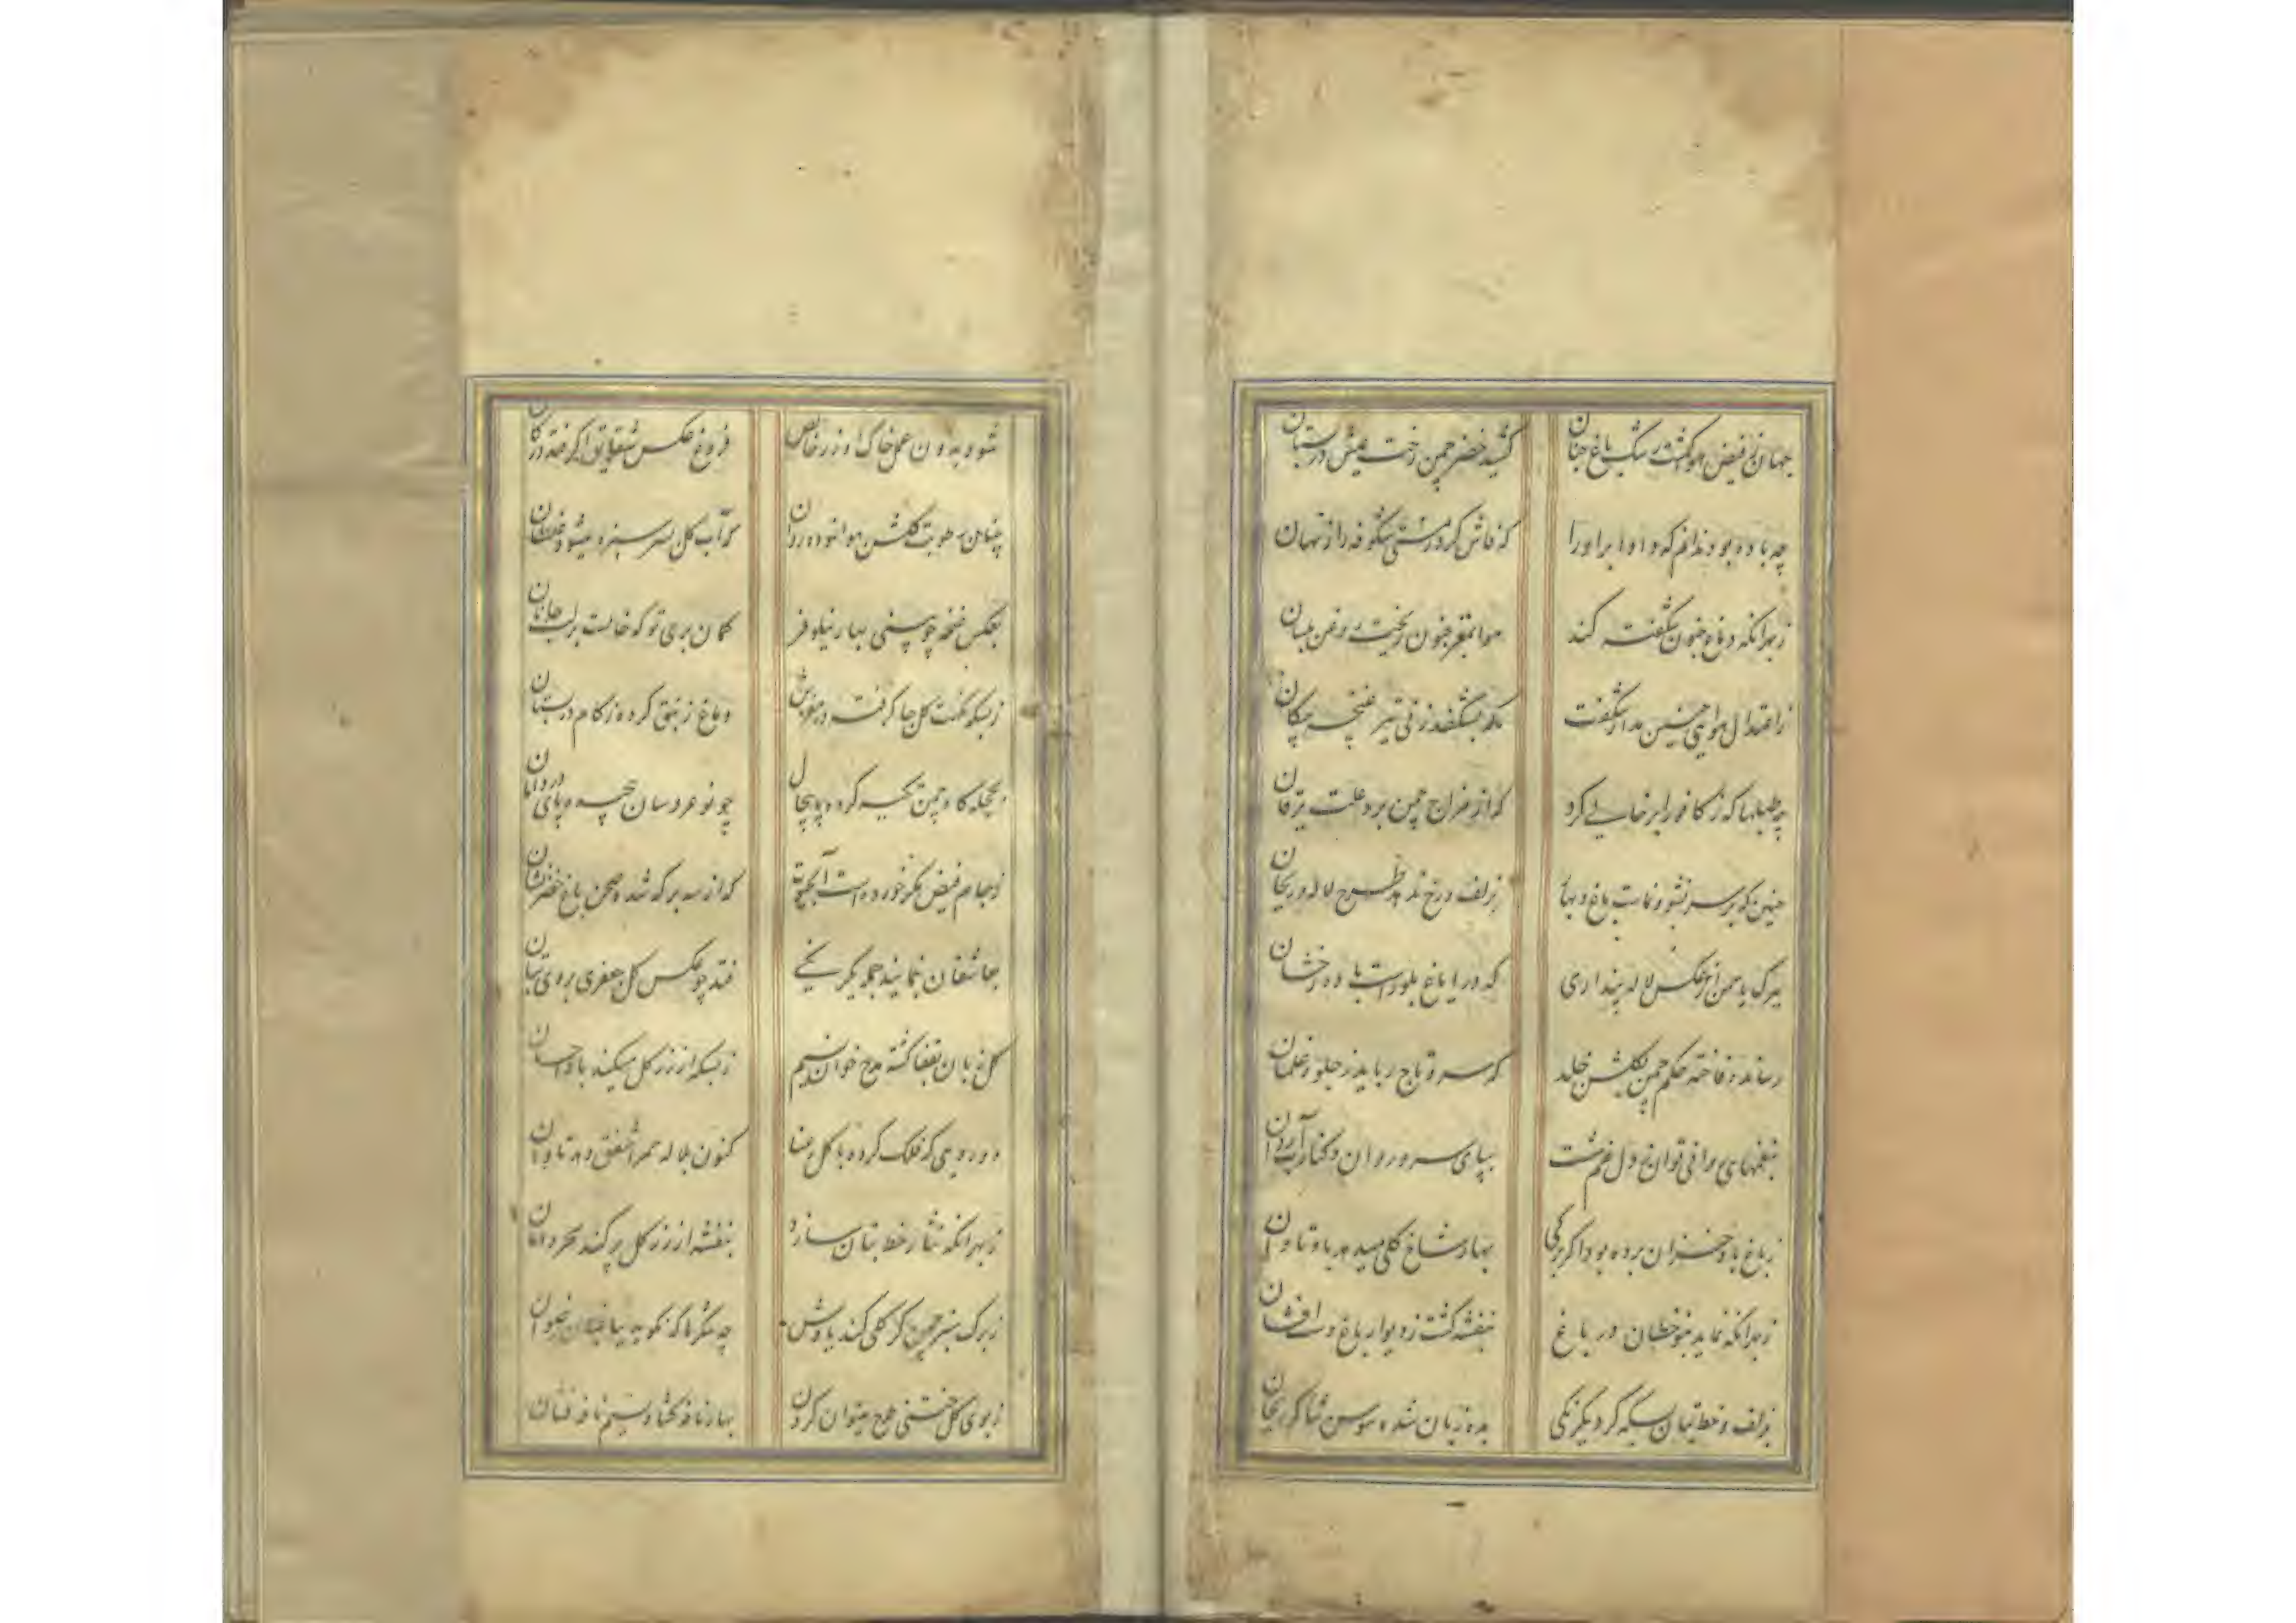 جهان ز فیض هوا گشت رشک باغ جنان
کشید خضر چمن رخت عیش در بستان
چه باده بود ندانم که داد ابر او را
که فاش کرد ز مستی شکوفه راز نهان
ز بهر آنکه دماغ جنون شکفته کند
هوا بمغز جنون ریخت روغن بلسان
ز اعتدال هوا این چنین مدار شگفت
که بشکفد ز نی تیر غنچه پیکان
چه طبلها که ز کافور ابر خالی کرد
که از مزاج چمن برد علت یرقان
چنین که بر سر نشو و نماست باغ و بهار
ز زلف و رخ طرح لاله و ریحان
ببرگ یاسمن از عکس لاله پنداری
که در ایاغ بلور است باده رخشان
رساند فاخته حکم چمن بگلشن خلد
که سرو تاج رباید ز حیله غلمان
بنغمهای عراقی توان ز دل غم شست
بپای سرو روان و کنار آب روان
ز باغ باد خزان برده بود اگر برگی
بهار شاخ گلی میدهد باو تاوان
ز بهر آنکه نماید بنوخطان در باغ
بنفشه گشت ز دیوار باغ دست افشان
بزلف و خط بتان بسکه کرد یکرنگی
بده زبان شده سوسن ثناگر ریحان
شود بدون عمل خاک او زر خالص
فروغ عکس شقایق اگر فتد در کان
چنان رطوبت گلشن هوا نموده روان
کز آب گل سر سبزه میشود غلطان
بعکس غنچه چو بینی بهار نیلوفر
گمان بری تو که خالست بر لب جانان
ز بسکه نکهت گل جا گرفت در مغزش
دماغ زنبق کرده زکام در بستان
بحجله گاه چمن تکیه کرده
چو نوعروسان پای در دامان
ز جام فیض مگر خورده است آبحیات
که از سه برگه شده صحن باغ خضر نشان
بعاشقان بنمایند جمله یکرنگی
فتد چو عکس گل جعفری بروی بتان
گل زبان بقفا گشته مدح خوان نسیم
ز بسکه از زر گل میکند باو احسان
دورویی که فلک کرده با گل رعنا
کنون بلاله حمرا شفق دهد تاوان
ز بهر آنکه نثار خط بتان سازد
بنفشه از زر گل پر کند سحر دامان
ز برگ سبز چمن گر گلی کند یادش
چه شکرها که نگوید
ز بوی گل ختنی طرح میتوان کردن
بهار نافه گشا و نسیم نافه فشان